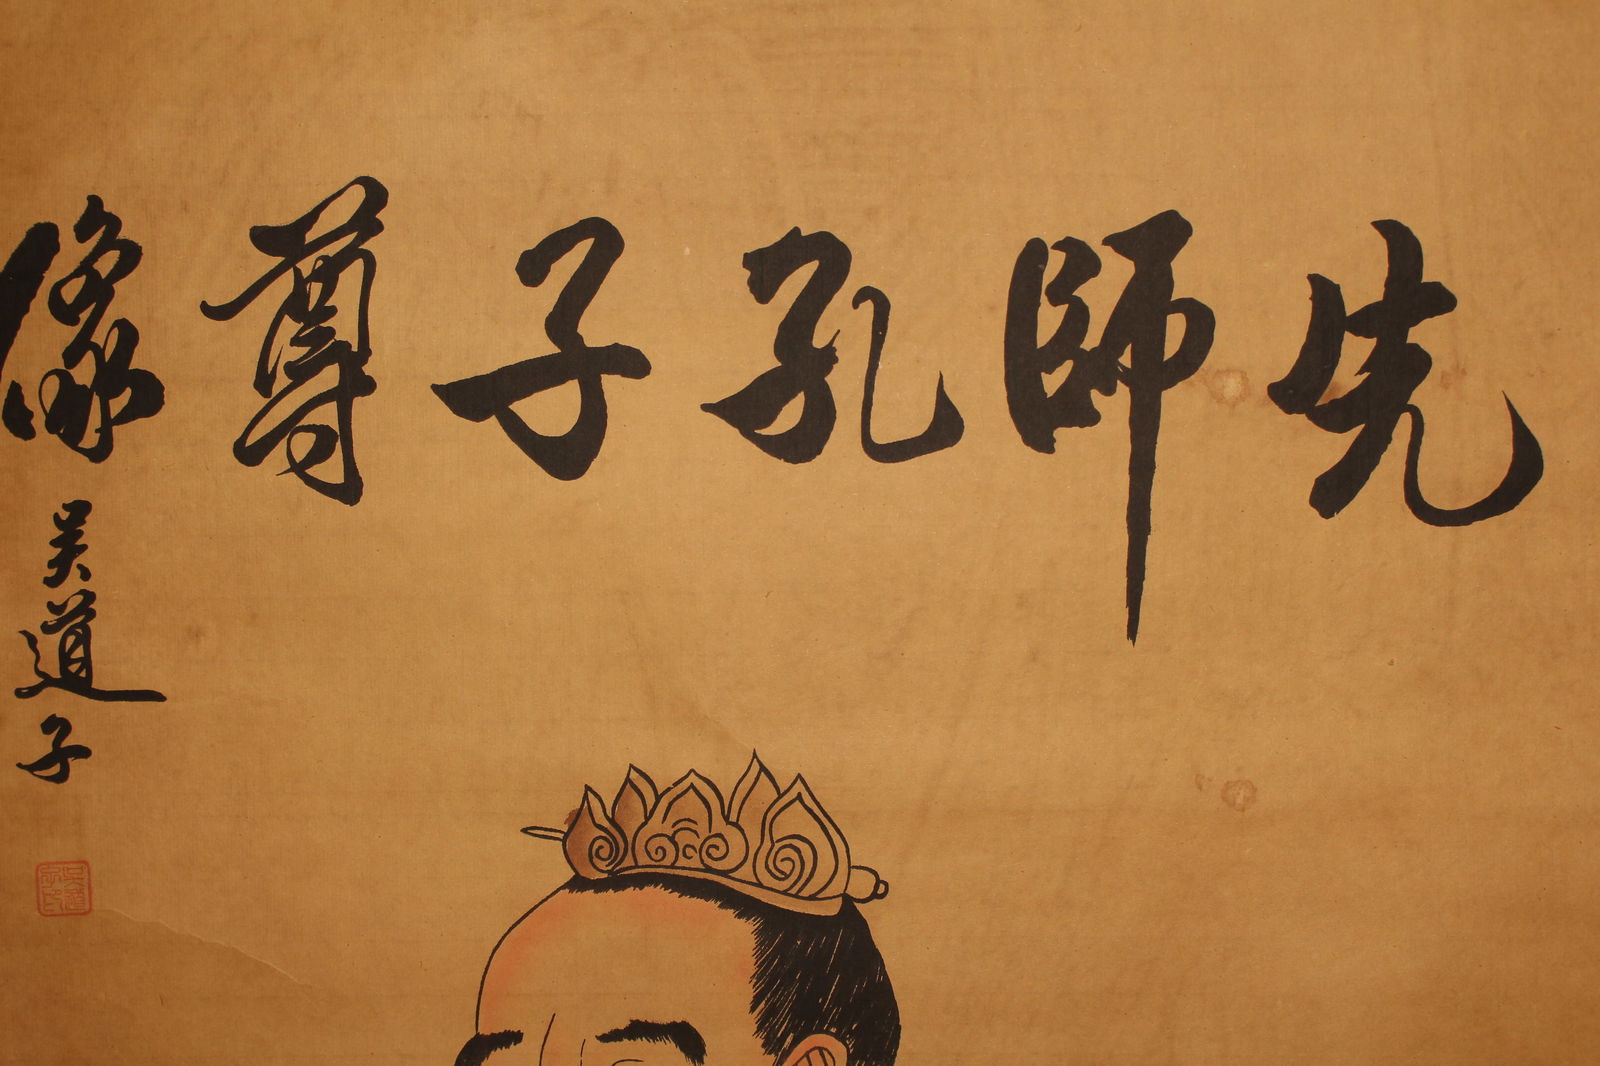 先師孔子尊像
吳道子